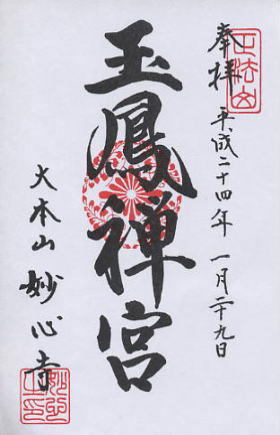 奉拝 平成二十四年 一月二十九日
正法山
玉鳳禅宮
大本山 妙心寺